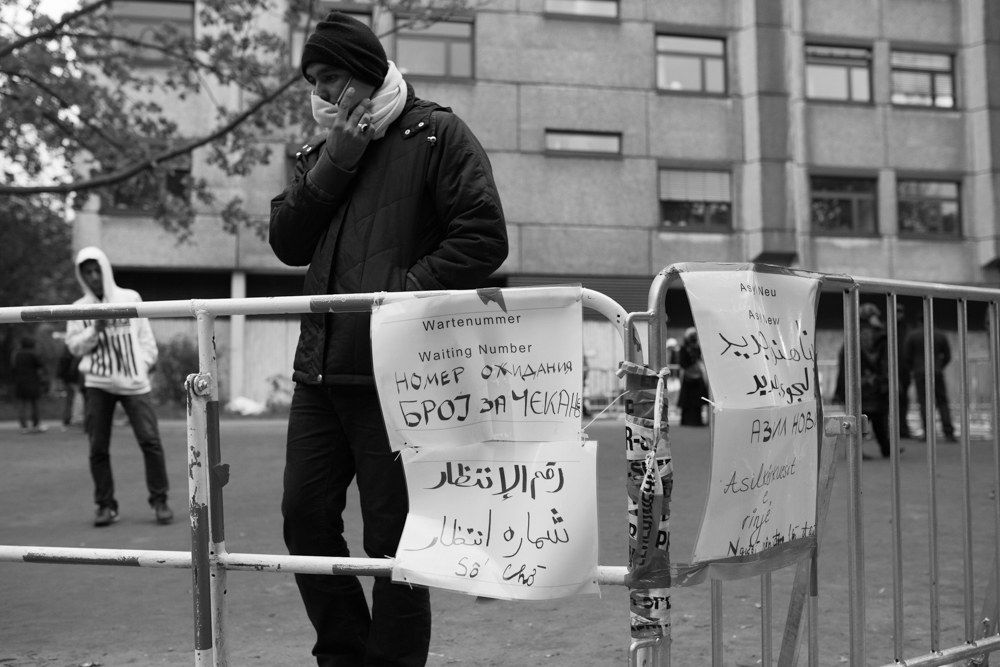 Wartenummer
Waiting Number
НОМЕР ОЖИДАНИЯ
БРОЈ ЗА ЧЕКАЊЕ
رقم الإنتظار
شماره انتظار
Số chờ
Asyl Neu
Asyl New
پناهنده جدید
لجوء جديد
АЗИЛ НОВ
Asilkërkuesit
e
rinje